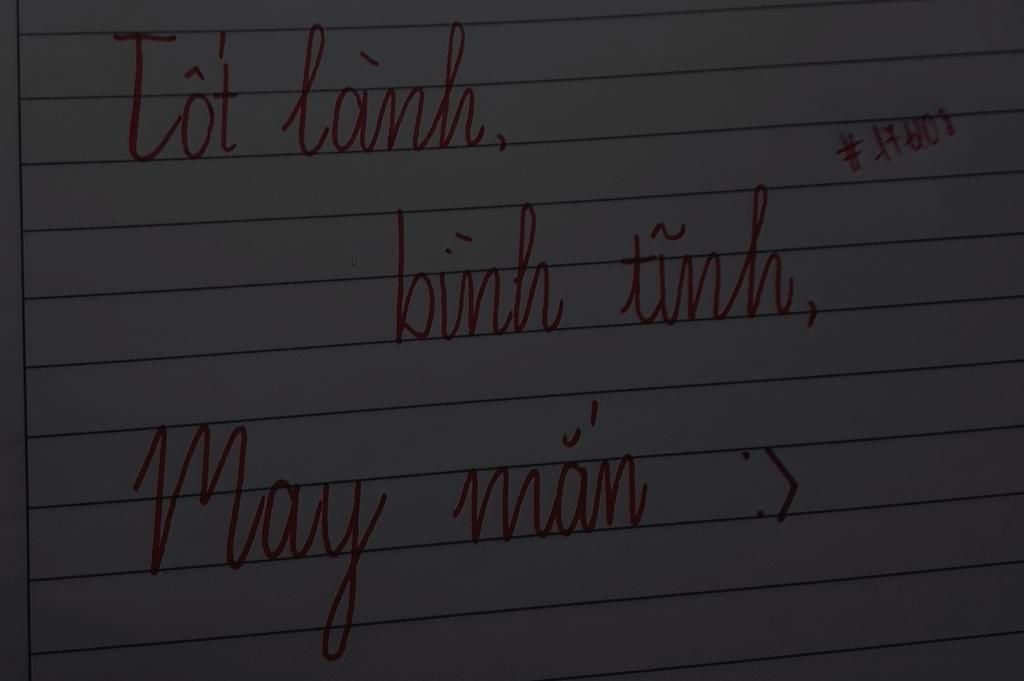 Tốt lành,
bình tĩnh,
May mắn :)